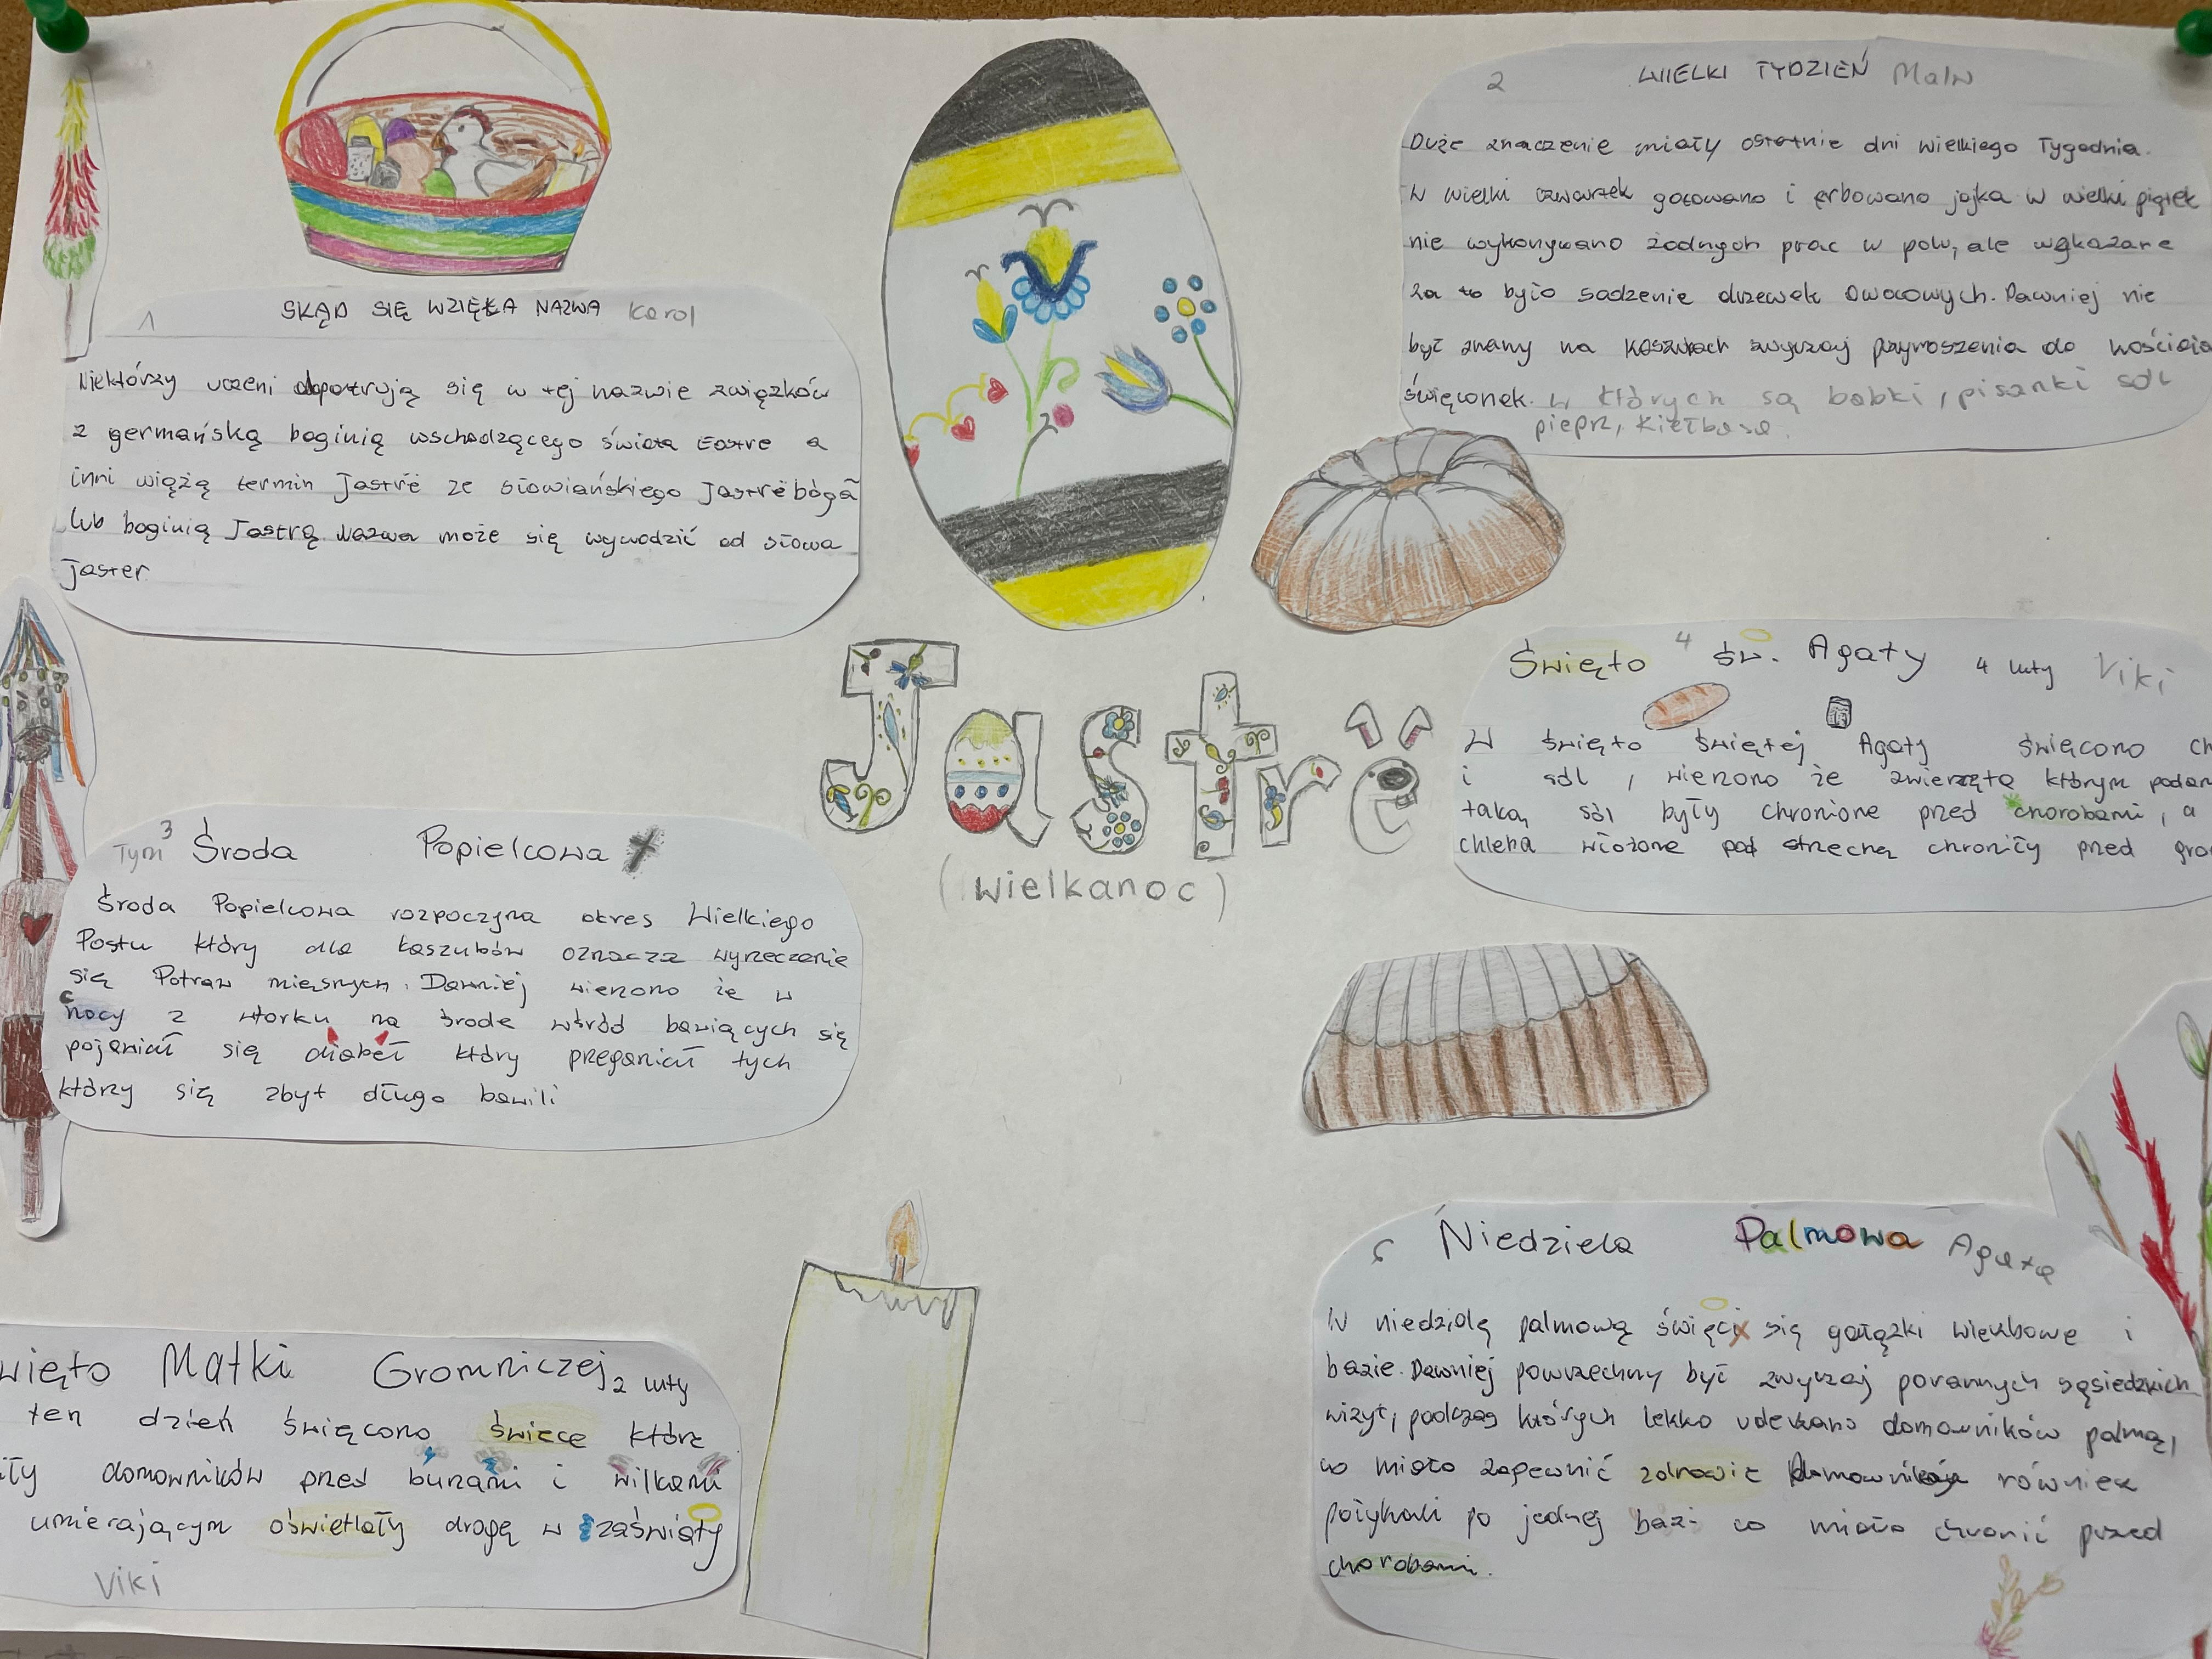 1
SKĄD SIĘ WZIĘŁA NAZWA Karol
Niektórzy uczeni dopatrują się w tej nazwie związków
z germańską boginią wschodzącego świata Eostre a
inni wiążą termin Jastrë ze słowiańskiego Jastrëbòga
lub boginią Jastrą. Nazwa może się wywodzić od słowa
jaster.
2
WIELKI TYDZIEŃ Malw
Duże znaczenie miały ostatnie dni Wielkiego Tygodnia.
W wielki czwartek gotowano i erbowano jajka w wielki piątek
nie wykonywano żadnych prac w polu, ale wskazane
za to było sadzenie drzewek owocowych. Dawniej nie
był znany na Kaszubach zwyczaj przynoszenia do kościoła
święconek. w których są babki, pisanki sól
pieprz, kiełbasa.
Jastrë
(wielkanoc)
3
Tym
Środa Popielcowa
Środa Popielcowa rozpoczyna okres Wielkiego
Postu który dla kaszubów oznacza wyrzeczenie
się Potraw mięsnych. Dawniej wierzono że w
nocy z wtorku na środe wśród bawiących się
pojawiał się diabeł który przeganiał tych
którzy się zbyt długo bawili
4
Święto św. Agaty 4 luty Viki
W święto świętej Agaty święcono ch
i sól, wierzono że zwierzęta którym podan
taką sól były chronione przed chorobami, a
chleba włożone pod strzechą chroniły przed gro
więto Matki Gromniczej 2 luty
ten dzień święcono świece które
iły domowników przed burzami i wilkami
umierającym oświetlały drogę w zaświaty
Viki
Niedziela Palmowa Agata
W niedzielę palmową święci się gałązki wierzbowe i
bazie. Dawniej powrzechny być zwyczaj porannych sąsiedzkich
wizyt, podczas których lekko uderzano domowników palmą,
co miało zapewnić zdrowie również
połykali po jednej bazi co miało chronić przed
chorobami.